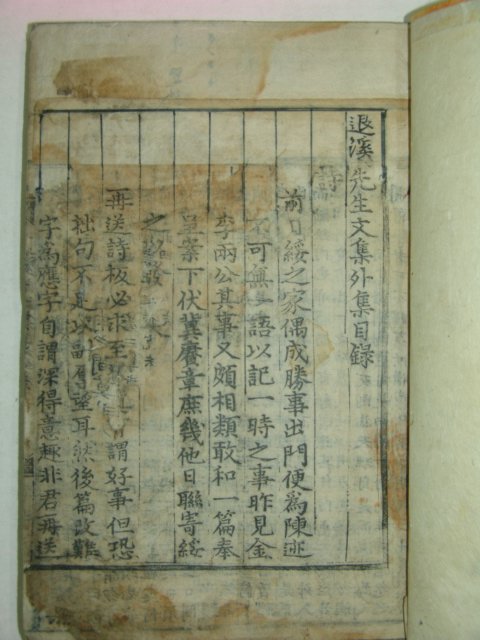 退溪先生文集外集目録
詩
前日綏之家偶成勝事出門便為陳迹
不可無一語以記一時之事昨見金
李兩公其事又頗相類敢和一篇奉
呈案下伏冀賡章庶幾他日聯寄綏
之
再送詩板必求至 謂好事但恐
拙句不足以副厚望耳然後篇改難
字為應字自謂深得意趣非君再送